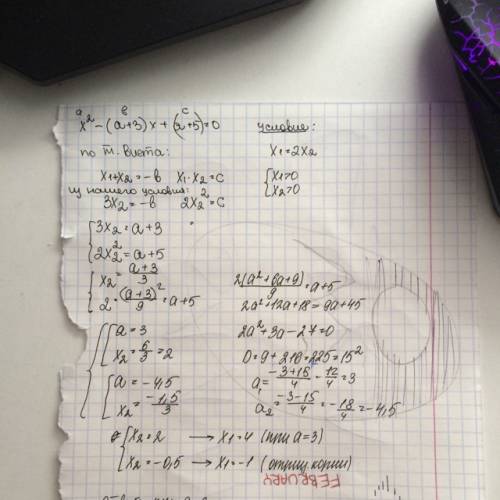 a в c
x² - (a+3)x + (a+5) = 0
условие:
по т. Виета:
x₁ = 2x₂
x₁+x₂ = -в x₁·x₂ = c
{x₁>0
x₂>0
из нашего условия:
3x₂ = -в 2x₂² = c
{3x₂ = a+3
2x₂² = a+5
{x₂ = (a+3)/3
2·(a+3)²/9 = a+5
2(a²+6a+9)/9 = a+5
2a²+12a+18 = 9a+45
2a²+3a-27 = 0
D = 9+216 = 225 = 15²
a₁ = (-3+15)/4 = 12/4 = 3
a₂ = (-3-15)/4 = -18/4 = -4,5
{a = 3
x₂ = 6/3 = 2
{a = -4,5
x₂ = -1,5/3
{x₂ = 2 → x₁ = 4 (при a=3)
x₂ = -0,5 → x₁ = -1 (отриц. корни)
FEBRUARY